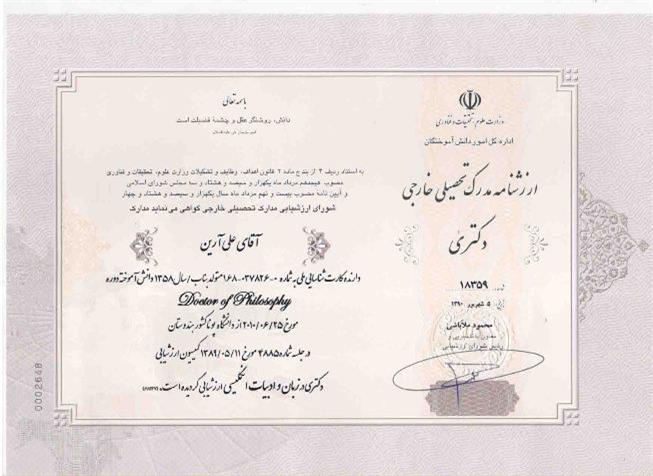 وزارت علوم، تحقیقات و فناوری
اداره کل امور دانش آموختگان
ارزشنامه مدرک تحصیلی خارجی
دکتری
۱۸۳۵۹
۵ شهریور ۱۳۹۰
محمود ملاباشی
باسمه تعالی
دانش، روشنگر عقل و چشمه فضیلت است
به استناد ردیف ۳ از بند ج ماده ۲ قانون اهداف، وظایف و تشکیلات وزارت علوم، تحقیقات و فناوری
مصوب هیجدهم مرداد ماه یکهزار و سیصد و هشتاد و سه مجلس شورای اسلامی
و آیین نامه مصوب بیست و نهم مرداد ماه سال یکهزار و سیصد و هشتاد و چهار
شورای ارزشیابی مدارک تحصیلی خارجی گواهی می نماید مدارک
آقای علی آرین
دارنده کارت شناسایی ملی به شماره ۰-۰۳۷۸۲۶-۱۶۸ متولد بناب / سال ۱۳۵۸ دانش آموخته دوره
Doctor of Philosophy
مورخ ۲۰۱۰/۰۶/۲۵ از دانشگاه پونا کشور هندوستان
در جلسه شماره ۴۸۸۵ مورخ ۱۳۸۹/۰۵/۱۱ کمیسیون ارزشیابی
دکتری در زبان و ادبیات انگلیسی ارزشیابی گردیده است.
0002648